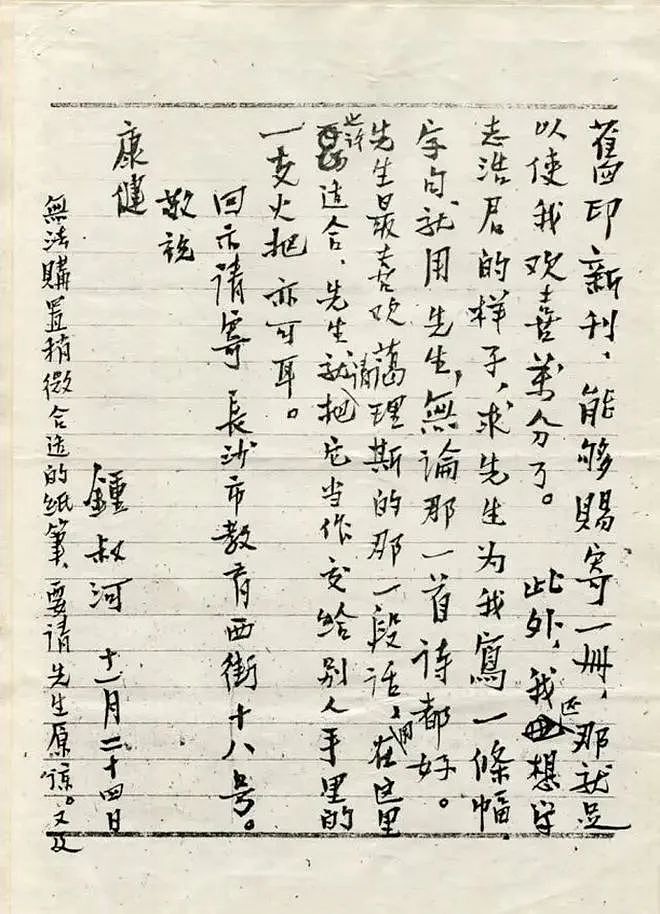 舊印新刊，能够賜寄一册，那就足
以使我欢喜萬分了。此外，我还想学
志浩君的样子，求先生为我寫一條幅，
字句就用先生，無論那一首诗都好。
先生最喜欢藹理斯的那一段话，用在这里
也许适合，先生就请把它当作交给别人手里的
一支火把亦可耳。
回示请寄長沙市教育西街十八号。
敬祝
康健
鍾叔河 十一月二十四日
無法購置稍微合适的纸筆，要请先生原諒。又及